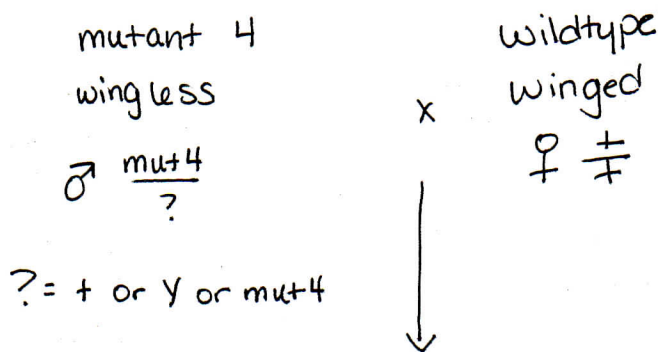 mutant 4
wingless
♂ mut4
?
? = + or Y or mut4
x
wildtype
winged
♀ +
+